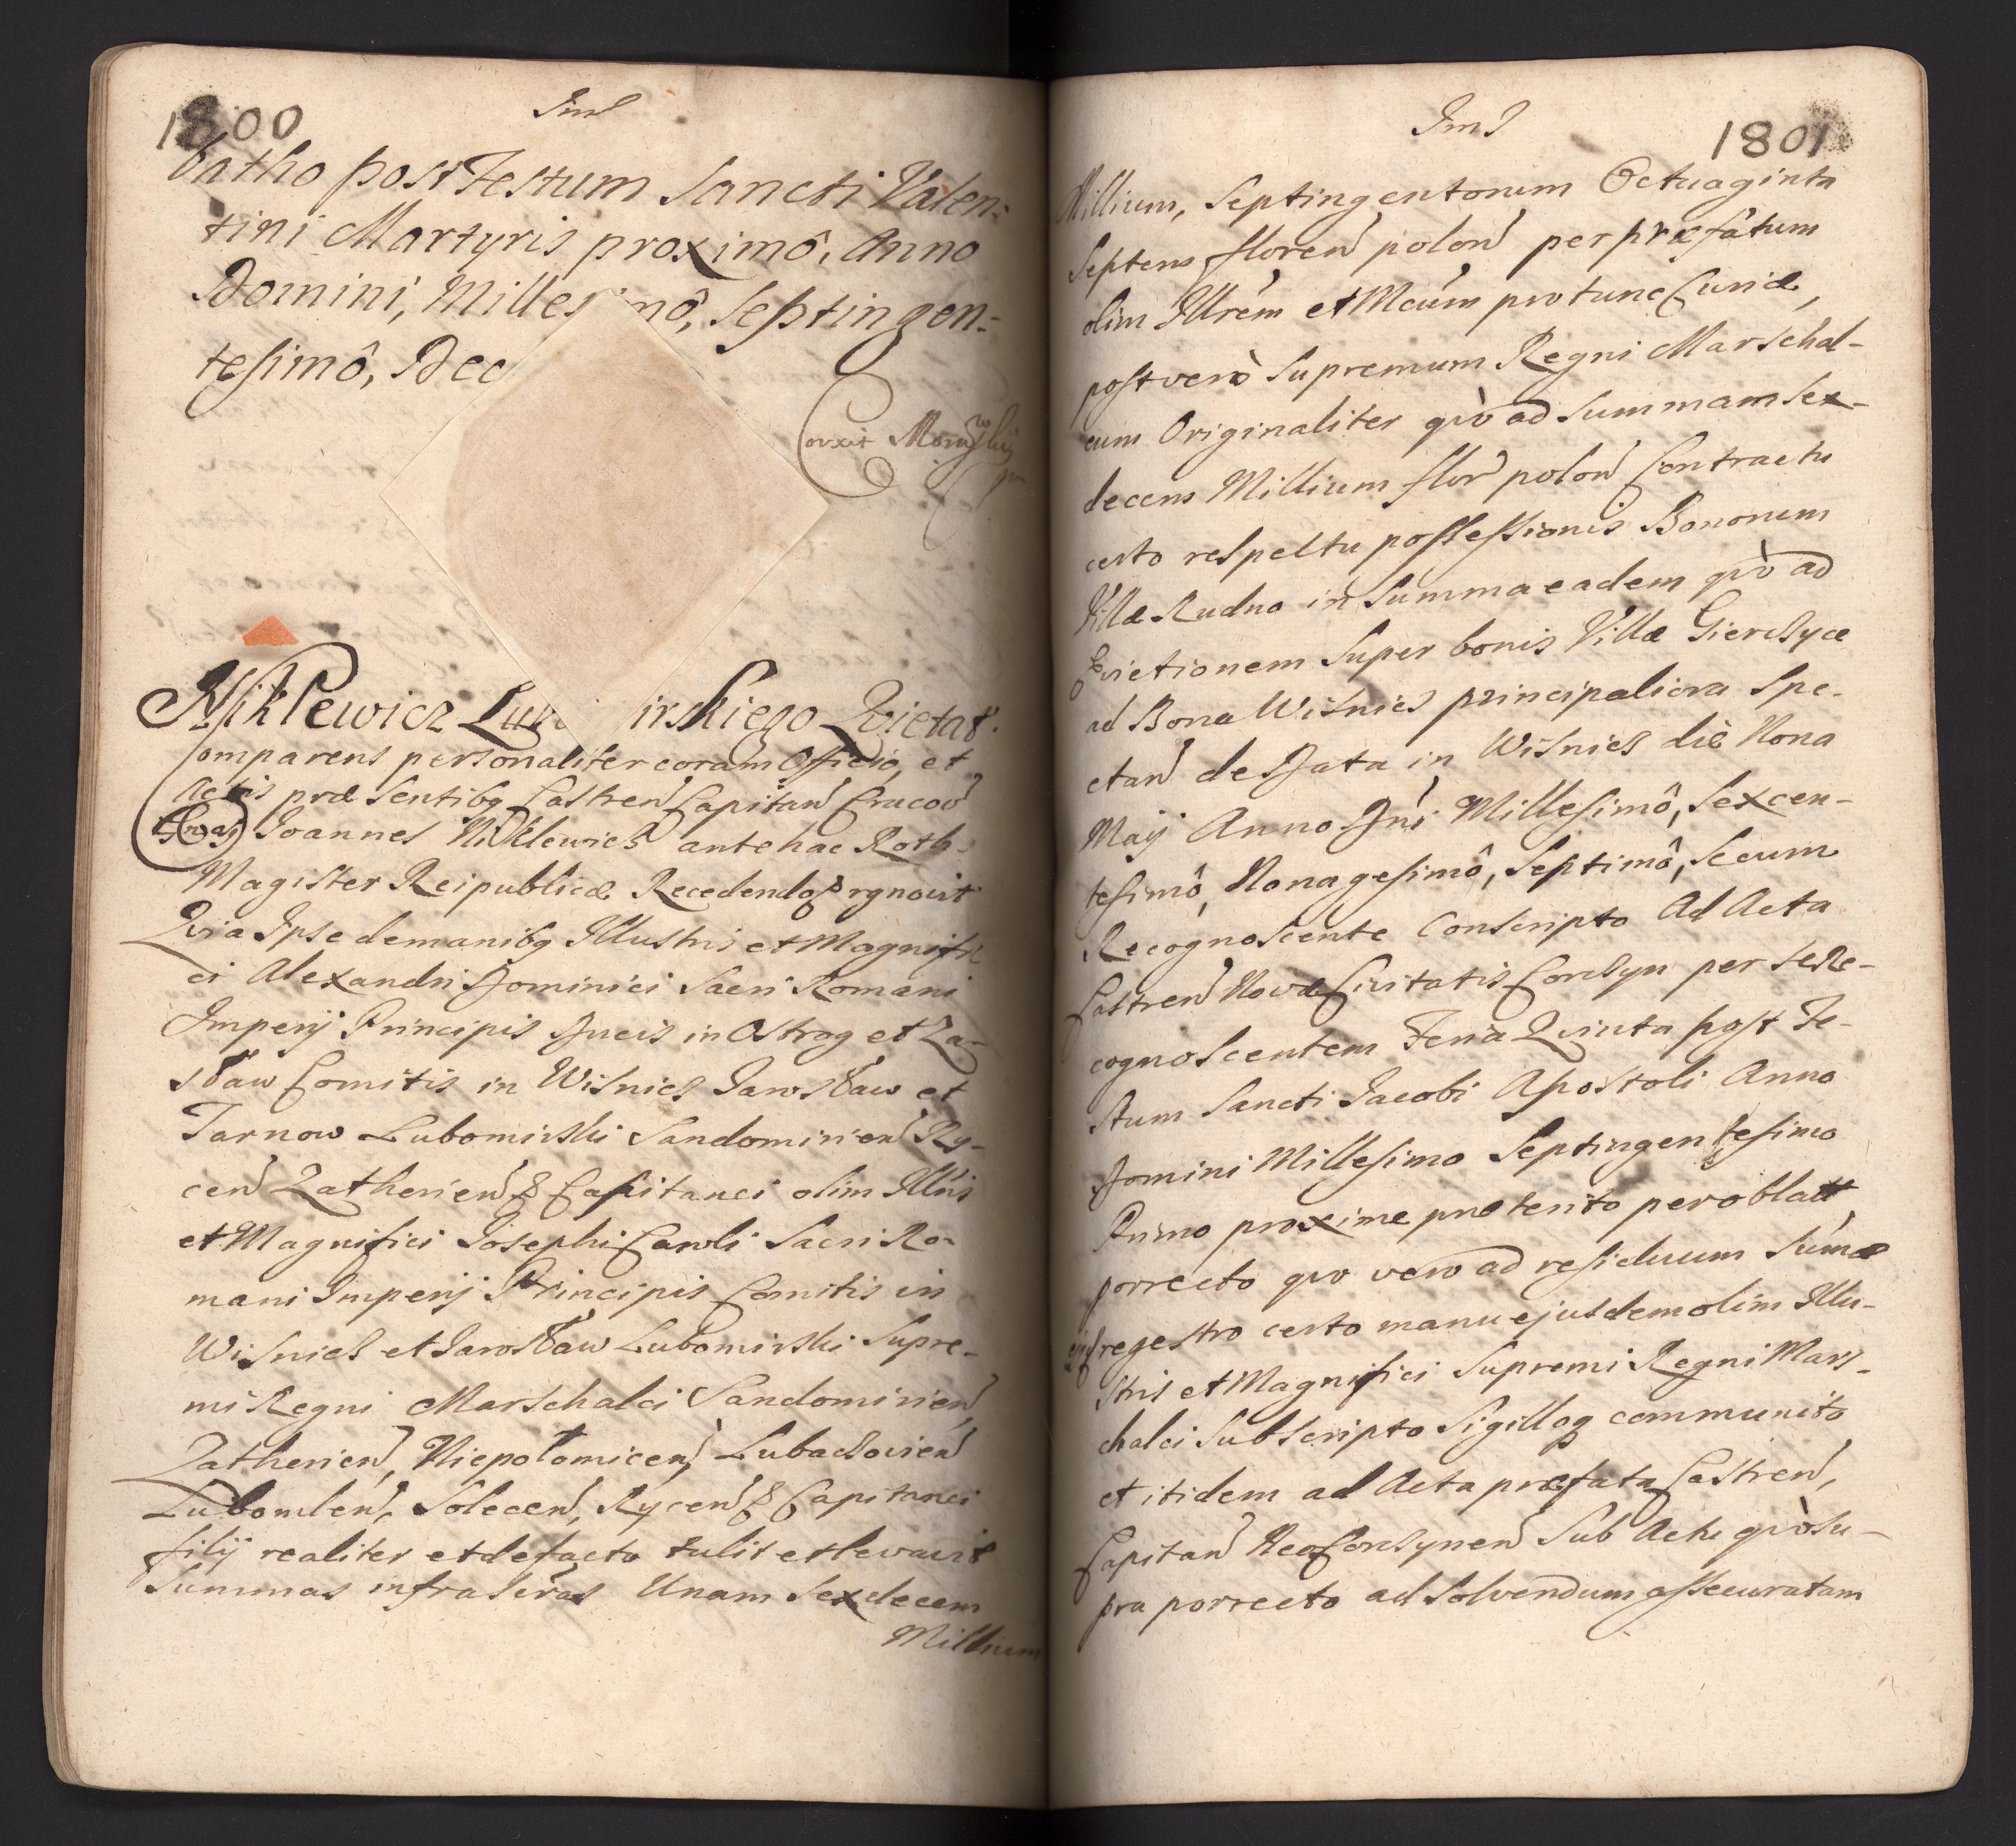 1800
batho post Festum Sancti Valen:
tini Martyris proximô, Anno
Domini, Mille mô, Septingen=
tesimô, Dec
Corexit
Niklewicz Lu irskiego Qvietat.
Comparens personaliter coram Officio, et
Actis præsentibq Castren Capitan Cracov
Joannes Niklewicz antehac Roth-
Magister Reipublicæ Recedendo & rgnovit
Qvia Ipse de manibq Illustris et Magnifi
ci Alexandri Dominici Sacri Romani
Imperij Principis Ducis in Ostrog et Za-
sław Comitis in Wisnicz Jarosław et
Tarnow Lubomirski Sandomirien Ry-
cen Zatherien & Capitanei olim Illris
et Magnifici Josephi Caroli Sacri Ro-
mani Imperij Principis Comitis in
Wisnicz et Jarosław Lubomirski Supre-
mi Regni Marschalci Sandomirien,
Zatherien, Niepołomicen, Lubaczovien
Lubomlen, Solecen, Rycen & Capitanei
filij realiter et de facto tulit et levavit
Summas infrascras Unam Sexdecem
Millium
1801
Millium, Septingentorum Octuaginta
Septem floren polon per præfatum
olim Illrem et Mcum pro tunc Curiæ,
post verò Supremum Regni Marschal-
cum Originaliter qvò ad Summam Sex-
decem Millium flor polon Contractu
certo respectu possessionis Bonorum
Villæ Rudno in Summa eadem qvò ad
Evictionem Super bonis Villæ Gierczyce
ad Bona Wisnicz principaliora Spe-
ctan de Data in Wisnicz die Nona
Maij Anno Dni Millesimô, Sexcen-
tesimô, Nonagesimô, Septimô, Secum
Recognoscente Conscripto Ad Acta
Castren Novæ Civitatis Corczyn per se Re-
cognoscentem Feria Qvinta post Fe-
stum Sancti Jacobi Apostoli Anno
Domini Millesimo Septingentesimo
Primo proxime præterito per oblatt
porrecto qvo vero ad residuum Sumæ
regestro certo manu ejusdem olim Illu-
stris et Magnifici Supremi Regni Mars-
chalci Subscripto Sigilloq communito
et itidem ad Acta præfata Castren,
Capitan NeoCorczynen Sub Actu qvò su-
pra porrecto ad Solvendum assecuratam